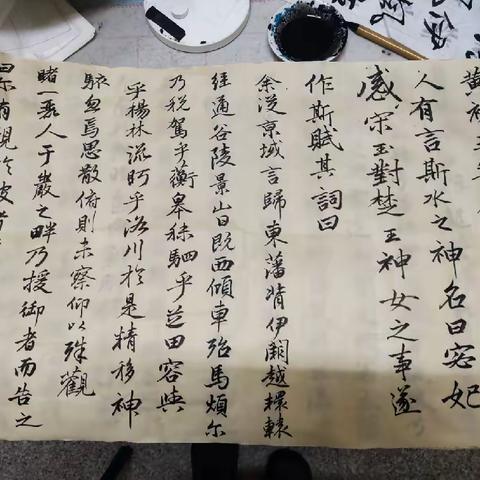 黄初三年
人有言斯水之神名曰宓妃
感宋玉對楚王神女之事遂
作斯賦其詞曰
余從京域言歸東藩背伊闕越轘轅
經通谷陵景山日既西傾車殆馬煩尔
乃税駕乎衡皋秣駟乎芝田容與
乎楊林流眄乎洛川於是精移神
駭忽焉思散俯則未察仰以殊觀
睹一麗人于巖之畔乃援御者而告之
曰尔有覿於彼者